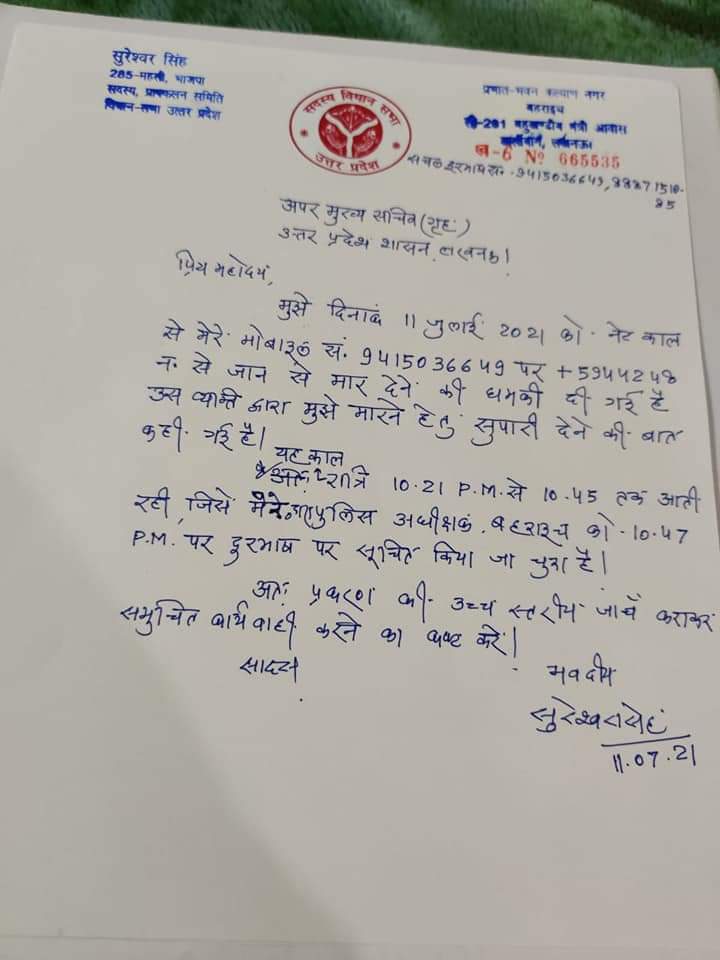 सुरेश्वर सिंह
285-महसी, भाजपा
सदस्य, प्राक्कलन समिति
विधान-सभा उत्तर प्रदेश
सदस्य विधान सभा
उत्तर प्रदेश
प्रभात-भवन कल्याण नगर
बहराइच
सी-291 बहुखण्डीय मंत्री आवास
लखनऊ
-6 Nº 665535
सं॰ -9415036649, 88871510-
85
अपर मुख्य सचिव (गृह)
उत्तर प्रदेश शासन, लखनऊ।
प्रिय महोदय,
मुझे दिनांक 11 जुलाई 2021 को नेट काल
से मेरे मोबाइल सं. 9415036649 पर +5944248
न. से जान से मार देने की धमकी दी गई है
उस व्यक्ति द्वारा मुझे मारने हेतु सुपारी देने की बात
कही गई है।
यह काल
रात्रि 10.21 P.M. से 10.45 तक आती
रही, जिसे मैंने पुलिस अधीक्षक बहराइच को 10.47
P.M. पर दूरभाष पर सूचित किया जा चुका है।
अतः प्रकरण की उच्च स्तरीय जाँच कराकर
समुचित कार्यवाही करने का कष्ट करें।
सादर
भवदीय
सुरेश्वर सिंह
11.07.21